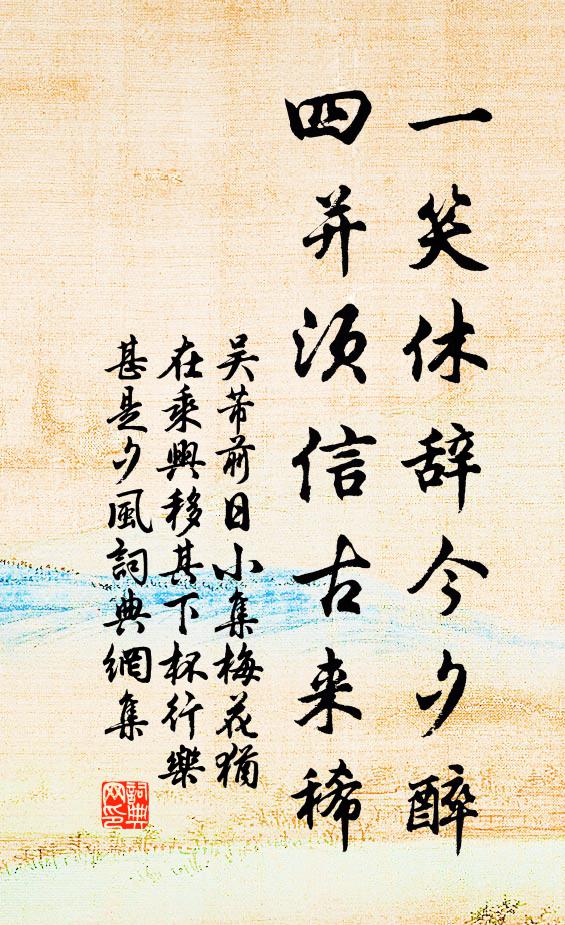 一笑休辞今夕醉
四并须信古来稀
吴芾前日小集梅花犹
在乘興移其下杯行樂
甚是夕風詞典網集
詞典網印